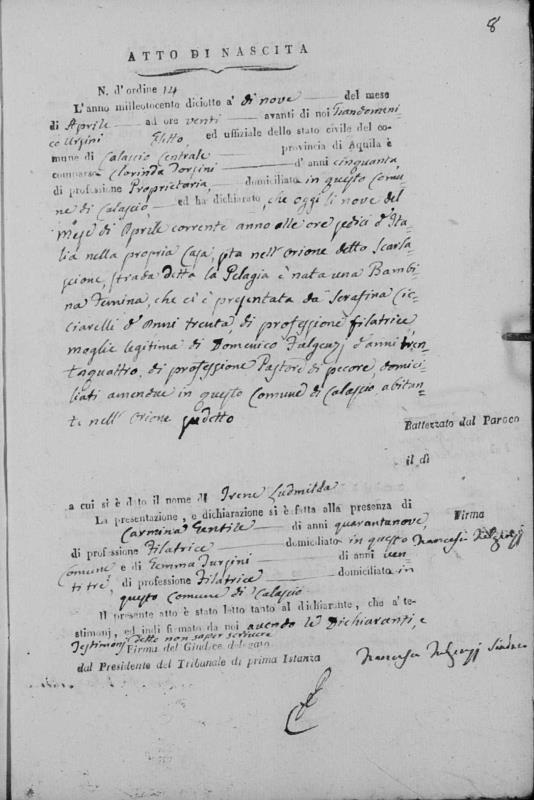 8
ATTO DI NASCITA
N. d'ordine 14
L'anno milleottocento diciotto a' di nove del mese
di Aprile ad ore venti avanti di noi Giandomeni-
co Ursini Eletto ed uffiziale dello stato civile del co-
mune di Calascio Centrale provincia di Aquila è
comparsa Clorinda Tursini d'anni cinquanta
di professione Proprietaria, domiciliato in questo Comu-
ne di Calascio ed ha dichiarato, che oggi li nove del
mese di Aprile corrente anno alle ore sedici d'Ita-
lia nella propria Casa, sita nell'orione detto Scarsa-
scione, strada detta la Pelagia è nata una Bambi-
na Femina, che ci è presentata da Serafina Cic-
ciarelli d'Anni trenta, di professione filatrice
moglie legitima di Domenico Fulgenzj d'anni tren-
taquattro, di professione Pastore di pecore, domici-
liati amendue in questo Comune di Calascio abitan-
te nell'orione sudetto
Battezzato dal Paroco
il dì
a cui si è dato il nome di Irene Ludmilda
La presentazione, e dichiarazione si è fatta alla presenza di
Carmina Gentile di anni quarantanove, Firma
di professione Filatrice domiciliato in questo Francesco Fulgenzj
Comune e di Gemma Tursini di anni ven-
titrè, di professione Filatrice domiciliato in
questo Comune di Calascio
Il presente atto è stato letto tanto al dichiarante, che a' te-
stimonj, ed indi firmato da noi avendo le Dichiaranti, e
Testimonj detto non saper scrivere
Firma del Giudice delegato
dal Presidente del Tribunale di prima Istanza
Francesco Fulgenzj Sindaco